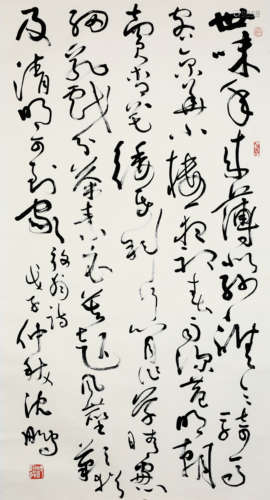 世味年来薄似纱谁令骑马
客京华小楼一夜听春雨深巷明朝
賣杏花矮纸斜行闲作草晴窓
细乳戏分茶素衣莫起風塵叹犹
及清明可到家
放翁诗
戊子仲秋沈鹏